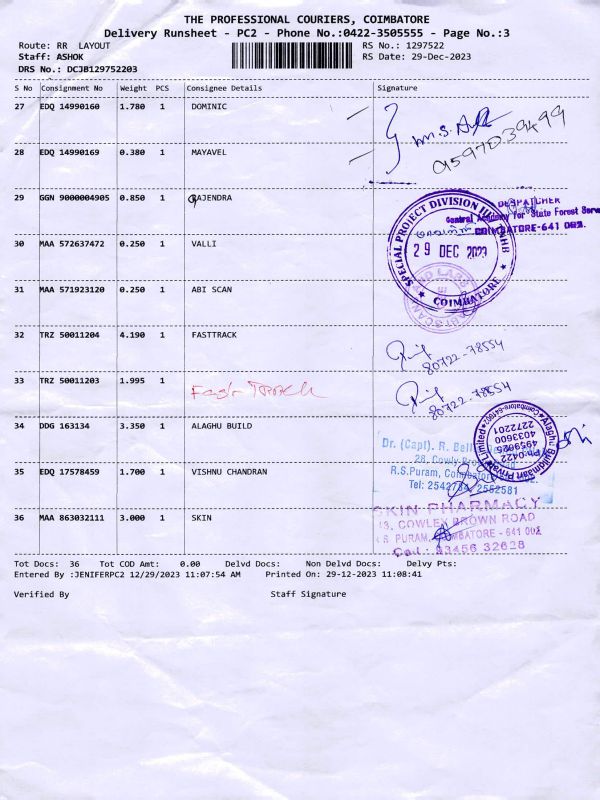 THE PROFESSIONAL COURIERS, COIMBATORE
Delivery Runsheet - PC2 - Phone No.:0422-3505555 - Page No.:3
Route: RR LAYOUT RS No.: 1297522
Staff: ASHOK RS Date: 29-Dec-2023
DRS No.: DCJB129752203
S No Consignment No Weight PCS Consignee Details Signature
27 EDQ 14990160 1.780 1 DOMINIC
9597039499
28 EDQ 14990169 0.380 1 MAYAVEL
29 GGN 9000004905 0.850 1 RAJENDRA
DESPATCHER
Central Academy for State Forest Serv
COIMBATORE-641 002.
SPECIAL PROJECT DIVISION III, TNHB
29 DEC 2023
COIMBATORE
30 MAA 572637472 0.250 1 VALLI
31 MAA 571923120 0.250 1 ABI SCAN
32 TRZ 50011204 4.190 1 FASTTRACK
80722-78554
33 TRZ 50011203 1.995 1 Fast Track
80722-78554
34 DDG 163134 3.350 1 ALAGHU BUILD
Alaghu Buildmaan Private Limited
Coimbatore-641001
Ph:0422
4959026
4033600
2272201
35 EDQ 17578459 1.700 1 VISHNU CHANDRAN
Dr. (Capt). R.
28, Cowly
R.S.Puram,
Tel: 2552581
36 MAA 863032111 3.000 1 SKIN
SKIN PHARMACY
COWLEY BROWN ROAD
PURAM, COIMBATORE - 641 002
Cell : 93456 32628
Tot Docs: 36 Tot COD Amt: 0.00 Delvd Docs: Non Delvd Docs: Delvy Pts:
Entered By :JENIFERPC2 12/29/2023 11:07:54 AM Printed On: 29-12-2023 11:08:41
Verified By Staff Signature